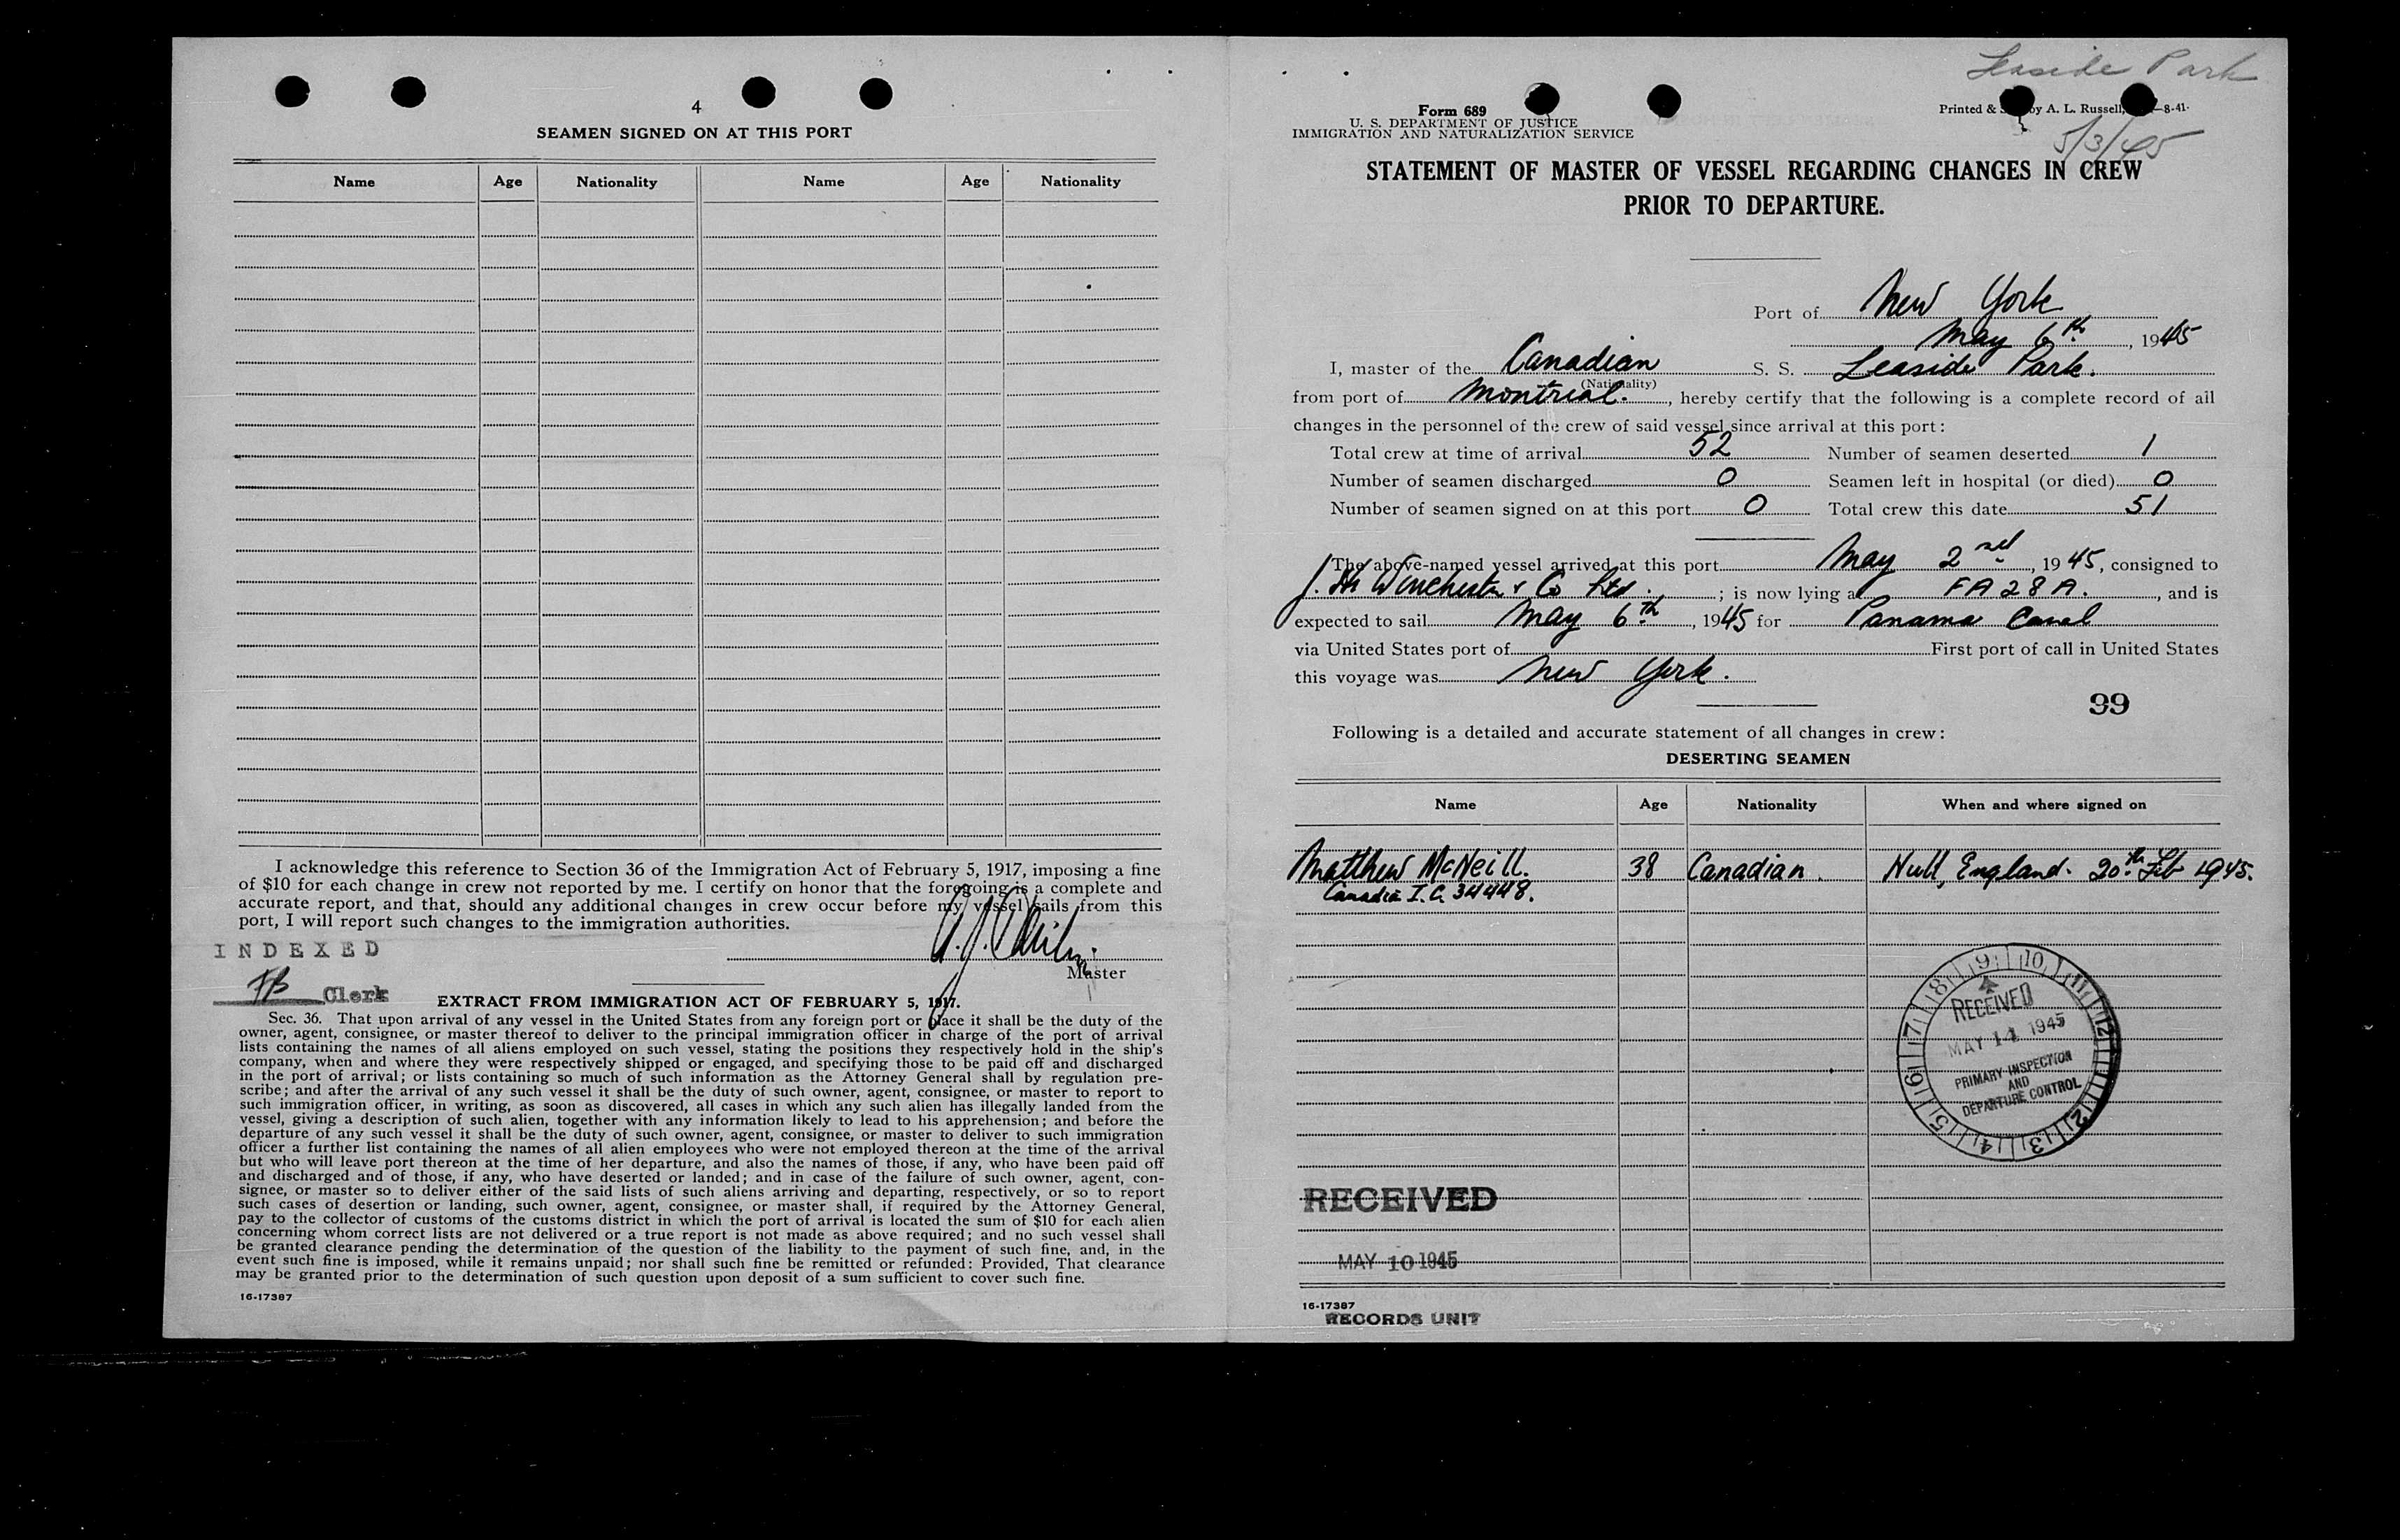 4
SEAMEN SIGNED ON AT THIS PORT
Name Age Nationality Name Age Nationality
I acknowledge this reference to Section 36 of the Immigration Act of February 5, 1917, imposing a fine
of $10 for each change in crew not reported by me. I certify on honor that the foregoing is a complete and
accurate report, and that, should any additional changes in crew occur before my vessel sails from this
port, I will report such changes to the immigration authorities.
INDEXED
Master
Clerk
EXTRACT FROM IMMIGRATION ACT OF FEBRUARY 5, 1917.
Sec. 36. That upon arrival of any vessel in the United States from any foreign port or place it shall be the duty of the
owner, agent, consignee, or master thereof to deliver to the principal immigration officer in charge of the port of arrival
lists containing the names of all aliens employed on such vessel, stating the positions they respectively hold in the ship's
company, when and where they were respectively shipped or engaged, and specifying those to be paid off and discharged
in the port of arrival; or lists containing so much of such information as the Attorney General shall by regulation pre-
scribe; and after the arrival of any such vessel it shall be the duty of such owner, agent, consignee, or master to report to
such immigration officer, in writing, as soon as discovered, all cases in which any such alien has illegally landed from the
vessel, giving a description of such alien, together with any information likely to lead to his apprehension; and before the
departure of any such vessel it shall be the duty of such owner, agent, consignee, or master to deliver to such immigration
officer a further list containing the names of all alien employees who were not employed thereon at the time of the arrival
but who will leave port thereon at the time of her departure, and also the names of those, if any, who have been paid off
and discharged and of those, if any, who have deserted or landed; and in case of the failure of such owner, agent, con-
signee, or master so to deliver either of the said lists of such aliens arriving and departing, respectively, or so to report
such cases of desertion or landing, such owner, agent, consignee, or master shall, if required by the Attorney General,
pay to the collector of customs of the customs district in which the port of arrival is located the sum of $10 for each alien
concerning whom correct lists are not delivered or a true report is not made as above required; and no such vessel shall
be granted clearance pending the determination of the question of the liability to the payment of such fine, and, in the
event such fine is imposed, while it remains unpaid; nor shall such fine be remitted or refunded: Provided, That clearance
may be granted prior to the determination of such question upon deposit of a sum sufficient to cover such fine.
16-17387
Leaside Park
Form 689
U. S. DEPARTMENT OF JUSTICE
IMMIGRATION AND NATURALIZATION SERVICE
Printed & by A. L. Russell, 8-41
5/3/45
STATEMENT OF MASTER OF VESSEL REGARDING CHANGES IN CREW
PRIOR TO DEPARTURE.
Port of New York
May 6th, 1945
I, master of the Canadian S. S. Leaside Park.
(Nationality)
from port of Montreal., hereby certify that the following is a complete record of all
changes in the personnel of the crew of said vessel since arrival at this port:
Total crew at time of arrival 52 Number of seamen deserted 1
Number of seamen discharged 0 Seamen left in hospital (or died) 0
Number of seamen signed on at this port 0 Total crew this date 51
The above-named vessel arrived at this port May 2nd, 1945, consigned to
J. H. Winchester & Co Ltd.; is now lying at FA 28 A., and is
expected to sail May 6th, 1945 for Panama Canal
via United States port of First port of call in United States
this voyage was New York.
99
Following is a detailed and accurate statement of all changes in crew:
DESERTING SEAMEN
Name Age Nationality When and where signed on
Matthew McNeill. 38 Canadian. Hull, England. 20th Feb 1945.
Canadian I.C. 34448.
9 10 11 12 1 2 3 4 5 6 7 8
RECEIVED
MAY 14 1945
PRIMARY INSPECTION
AND
DEPARTURE CONTROL
RECEIVED
MAY 10 1945
16-17387
RECORDS UNIT